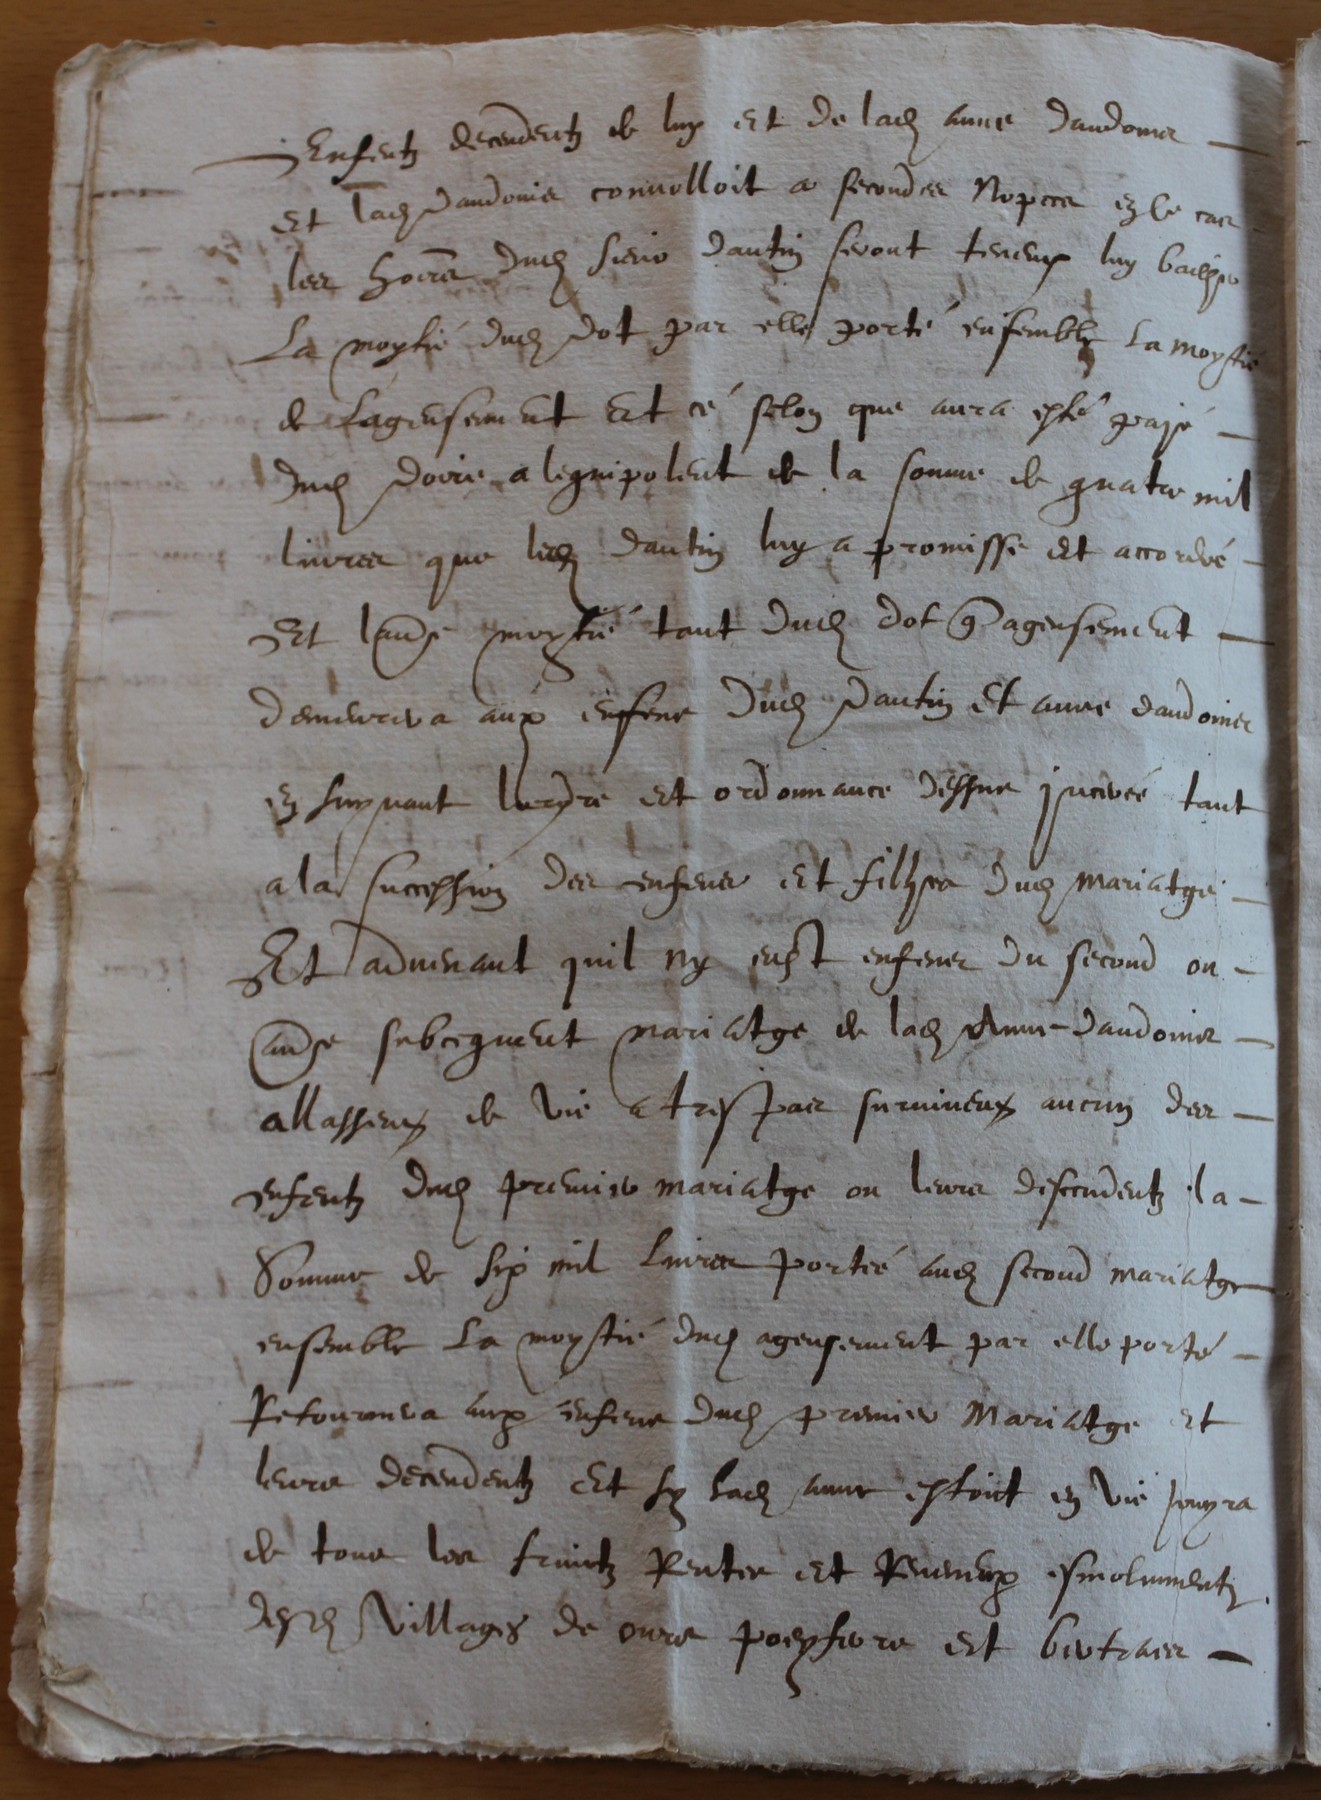 Enfentz decendentz de luy et de lad anne dandoins
et lad dandoins convolloit a secondes nopces en ce cas
les hoirs dud sieur dantin seront teneus luy bailher
La moytié dud dot par elle porté ensemble La moytié
de Lagensement Et cé selon que aura esté payé
dud doire a lequipolent de la somme de quatre mil
liures que led dantin luy a promisse et accordé
Et laude moytié tant dud dot q agensement
demeurera aux enfens dud dantin Et anne dandoins
en suyuant lordre et ordonnance dessus juserée tant
a la succession des enfens et filhes dud mariatge
Et aduenant quil ny eust enfens du second ou
aude subcequent mariatge de lad Anne dandoins
allasseus de vie a trespas suruiueus aucun des
enfentz dud premier mariatge ou leurs descendentz la
Somme de six mil Liures portée aud second mariatge
ensemble La moytié dud agensement par elle porté
Retournera aux enfens dud premier Mariatge et
leurs decendentz Et sy Lad anne estoict en vie jouyra
de tous les fruictz Rentes et Reuenus esmolumentz
desd Villages de ours poeyferre et bertraes